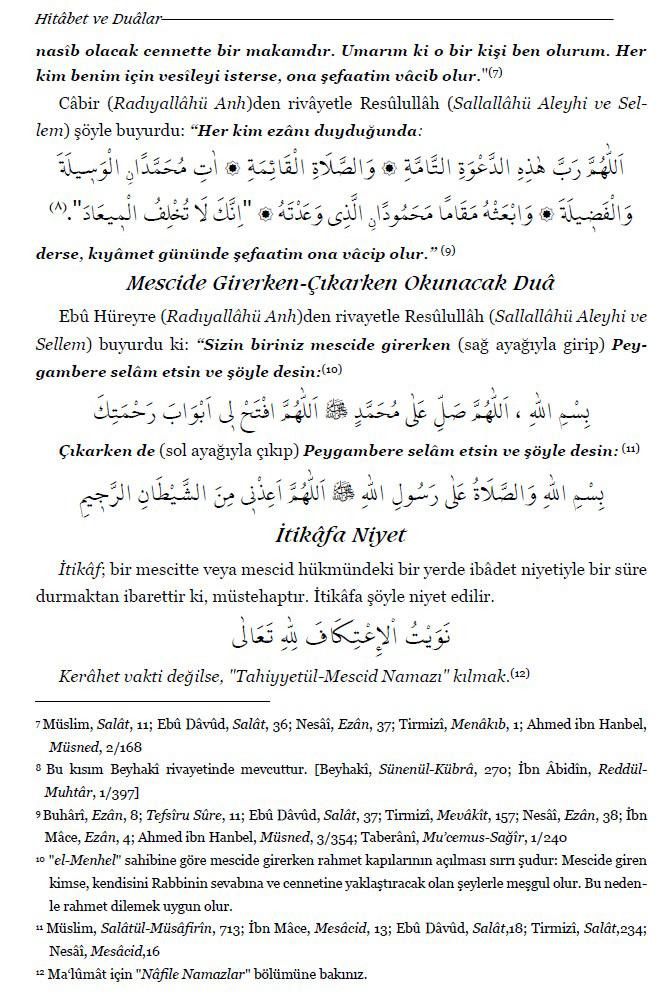 Hitâbet ve Duâlar
nasîb olacak cennette bir makamdır. Umarım ki o bir kişi ben olurum. Her
kim benim için vesîleyi isterse, ona şefaatim vâcib olur."(7)
Câbir (Radıyallâhü Anh)den rivâyetle Resûlullâh (Sallallâhü Aleyhi ve Sel-
lem) şöyle buyurdu: “Her kim ezânı duyduğunda:
اَللّٰهُمَّ رَبَّ هٰذِهِ الدَّعْوَةِ التَّامَّةِ ۞ وَالصَّلَاةِ الْقَائِمَةِ ۞ اٰتِ مُحَمَّدًانِ الْوَسٖيلَةَ
وَالْفَضٖيلَةَ ۞ وَابْعَثْهُ مَقَامًا مَحْمُودًانِ الَّذِى وَعَدْتَهُ ۞ "اِنَّكَ لَا تُخْلِفُ الْمٖيعَادَ".(٨)
derse, kıyâmet gününde şefaatim ona vâcip olur.” (9)
Mescide Girerken-Çıkarken Okunacak Duâ
Ebû Hüreyre (Radıyallâhü Anh)den rivayetle Resûlullâh (Sallallâhü Aleyhi ve
Sellem) buyurdu ki: “Sizin biriniz mescide girerken (sağ ayağıyla girip) Pey-
gambere selâm etsin ve şöyle desin:(10)
بِسْمِ اللّٰهِ ، اَللّٰهُمَّ صَلِّ عَلٰى مُحَمَّدٍ ﷺ اَللّٰهُمَّ افْتَحْ لٖى اَبْوَابَ رَحْمَتِكَ
Çıkarken de (sol ayağıyla çıkıp) Peygambere selâm etsin ve şöyle desin: (11)
بِسْمِ اللّٰهِ وَالصَّلَاةُ عَلٰى رَسُولِ اللّٰهِ ﷺ اَللّٰهُمَّ اَعِذْنٖى مِنَ الشَّيْطَانِ الرَّجٖيمِ
İtikâfa Niyet
İtikâf; bir mescitte veya mescid hükmündeki bir yerde ibâdet niyetiyle bir süre
durmaktan ibarettir ki, müstehaptır. İtikâfa şöyle niyet edilir.
نَوَيْتُ الْاِعْتِكَافَ لِلّٰهِ تَعَالٰى
Kerâhet vakti değilse, "Tahiyyetül-Mescid Namazı" kılmak.(12)
7 Müslim, Salât, 11; Ebû Dâvûd, Salât, 36; Nesâî, Ezân, 37; Tirmizî, Menâkıb, 1; Ahmed ibn Hanbel,
Müsned, 2/168
8 Bu kısım Beyhakî rivayetinde mevcuttur. [Beyhakî, Sünenül-Kübrâ, 270; İbn Âbidîn, Reddül-
Muhtâr, 1/397]
9 Buhârî, Ezân, 8; Tefsîru Sûre, 11; Ebû Dâvûd, Salât, 37; Tirmizî, Mevâkît, 157; Nesâî, Ezân, 38; İbn
Mâce, Ezân, 4; Ahmed ibn Hanbel, Müsned, 3/354; Taberânî, Mu’cemus-Sağîr, 1/240
10 "el-Menhel" sahibine göre mescide girerken rahmet kapılarının açılması sırrı şudur: Mescide giren
kimse, kendisini Rabbinin sevabına ve cennetine yaklaştıracak olan şeylerle meşgul olur. Bu neden-
le rahmet dilemek uygun olur.
11 Müslim, Salâtül-Müsâfirîn, 713; İbn Mâce, Mesâcid, 13; Ebû Dâvûd, Salât,18; Tirmizî, Salât,234;
Nesâî, Mesâcid,16
12 Ma‘lûmât için "Nâfile Namazlar" bölümüne bakınız.